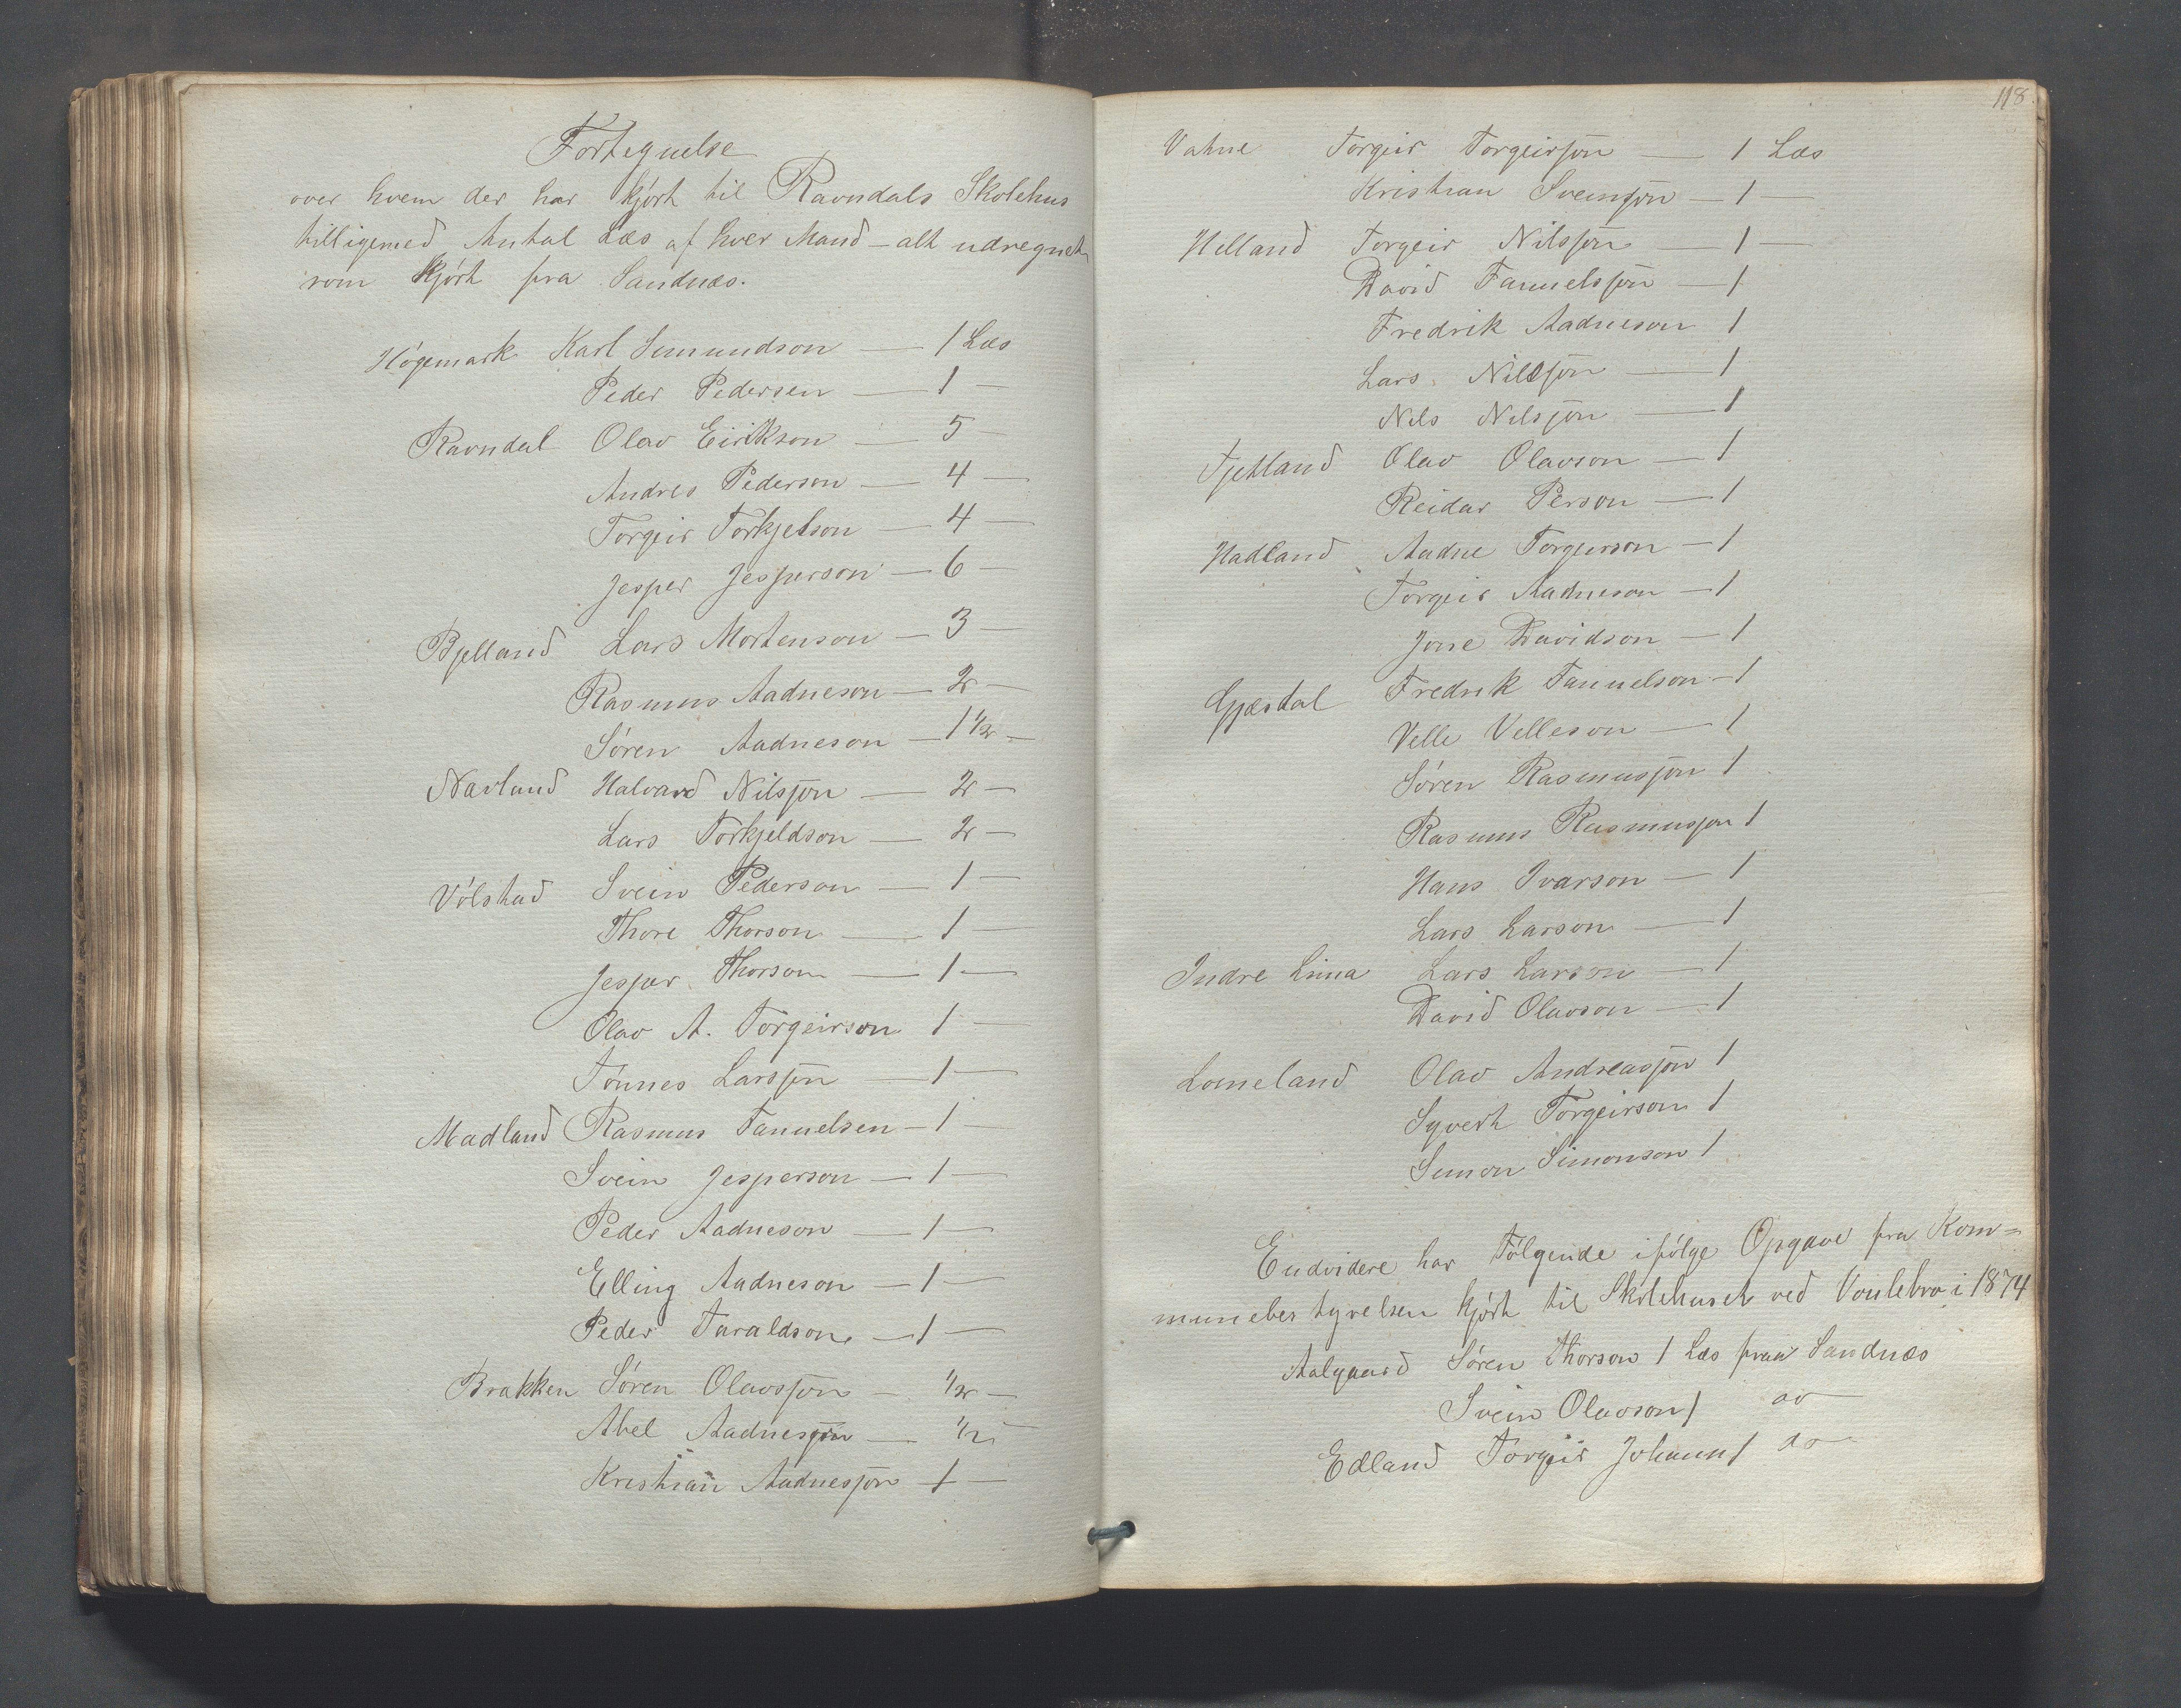 Fortegnelse
over hvem der har kjørt til Ravndals Skolehus
tilligemed Antal Læs af hver Mand – alt udregnet
som kjørt fra Sandnæs.
Høgemark Karl Simundson — 1 Læs
Peder Pedersen — 1 —
Ravndal Olav Eirikson — 5 —
Andres Pederson — 4 —
Torgeir Torkjelson — 4 —
Jesper Jesperson — 6 —
Bjelland Lars Mortenson — 3 —
Rasmus Aadneson — 2 —
Søren Aadneson — 1 1/2 —
Navland Halvard Nilsjøn — 2 —
Lars Torkjeldson — 2 —
Vølstad Svein Pederson — 1 —
Thore Thorson — 1 —
Jesper Thorson — 1 —
Olav A. Torgeirson 1 —
Tønnes Larsjøn — 1 —
Madland Rasmus Fanuelsen — 1 —
Svein Jesperson — 1 —
Peder Aadneson — 1 —
Elling Aadneson — 1 —
Peder Taraldson — 1 —
Brakken Søren Olavsjøn — 1/2 —
Abel Aadnesjøn — 1/2 —
Kristian Aadnesjøn 1 —
118
Vatne Torgeir Torgeirsjøn — 1 Læs
Kristian Sveinsjøn — 1 —
Helland Torgeir Nilsjøn — 1 —
David Fanuelsjøn — 1
Fredrik Aadneson 1
Lars Nilsjøn — 1
Nils Nilsjøn — 1
Tjetland Olav Olavson — 1
Reidar Person — 1
Hadland Aadne Torgeirson — 1
Torgeir Aadneson — 1
Jone Davidson — 1
Gjesdal Fredrik Fanuelson — 1
Velle Velleson — 1
Søren Rasmusjøn 1
Rasmus Rasmusjøn 1
Hans Ivarson — 1
Lars Larson — 1
Indre Lima Lars Larson — 1
David Olavson — 1
Lomeland Olav Andreasjøn 1
Syvert Torgeirson 1
Simon Simonson 1
Endvidere har Følgende ifølge Opgave fra Kom=
munebestyrelsen kjørt til Skolehuset ved Voulebro i 1874
Aalgaard Søren Thorson 1 Læs fraa Sandnæs
Svein Olavson 1 do
Edland Torgeir Johann 1 do